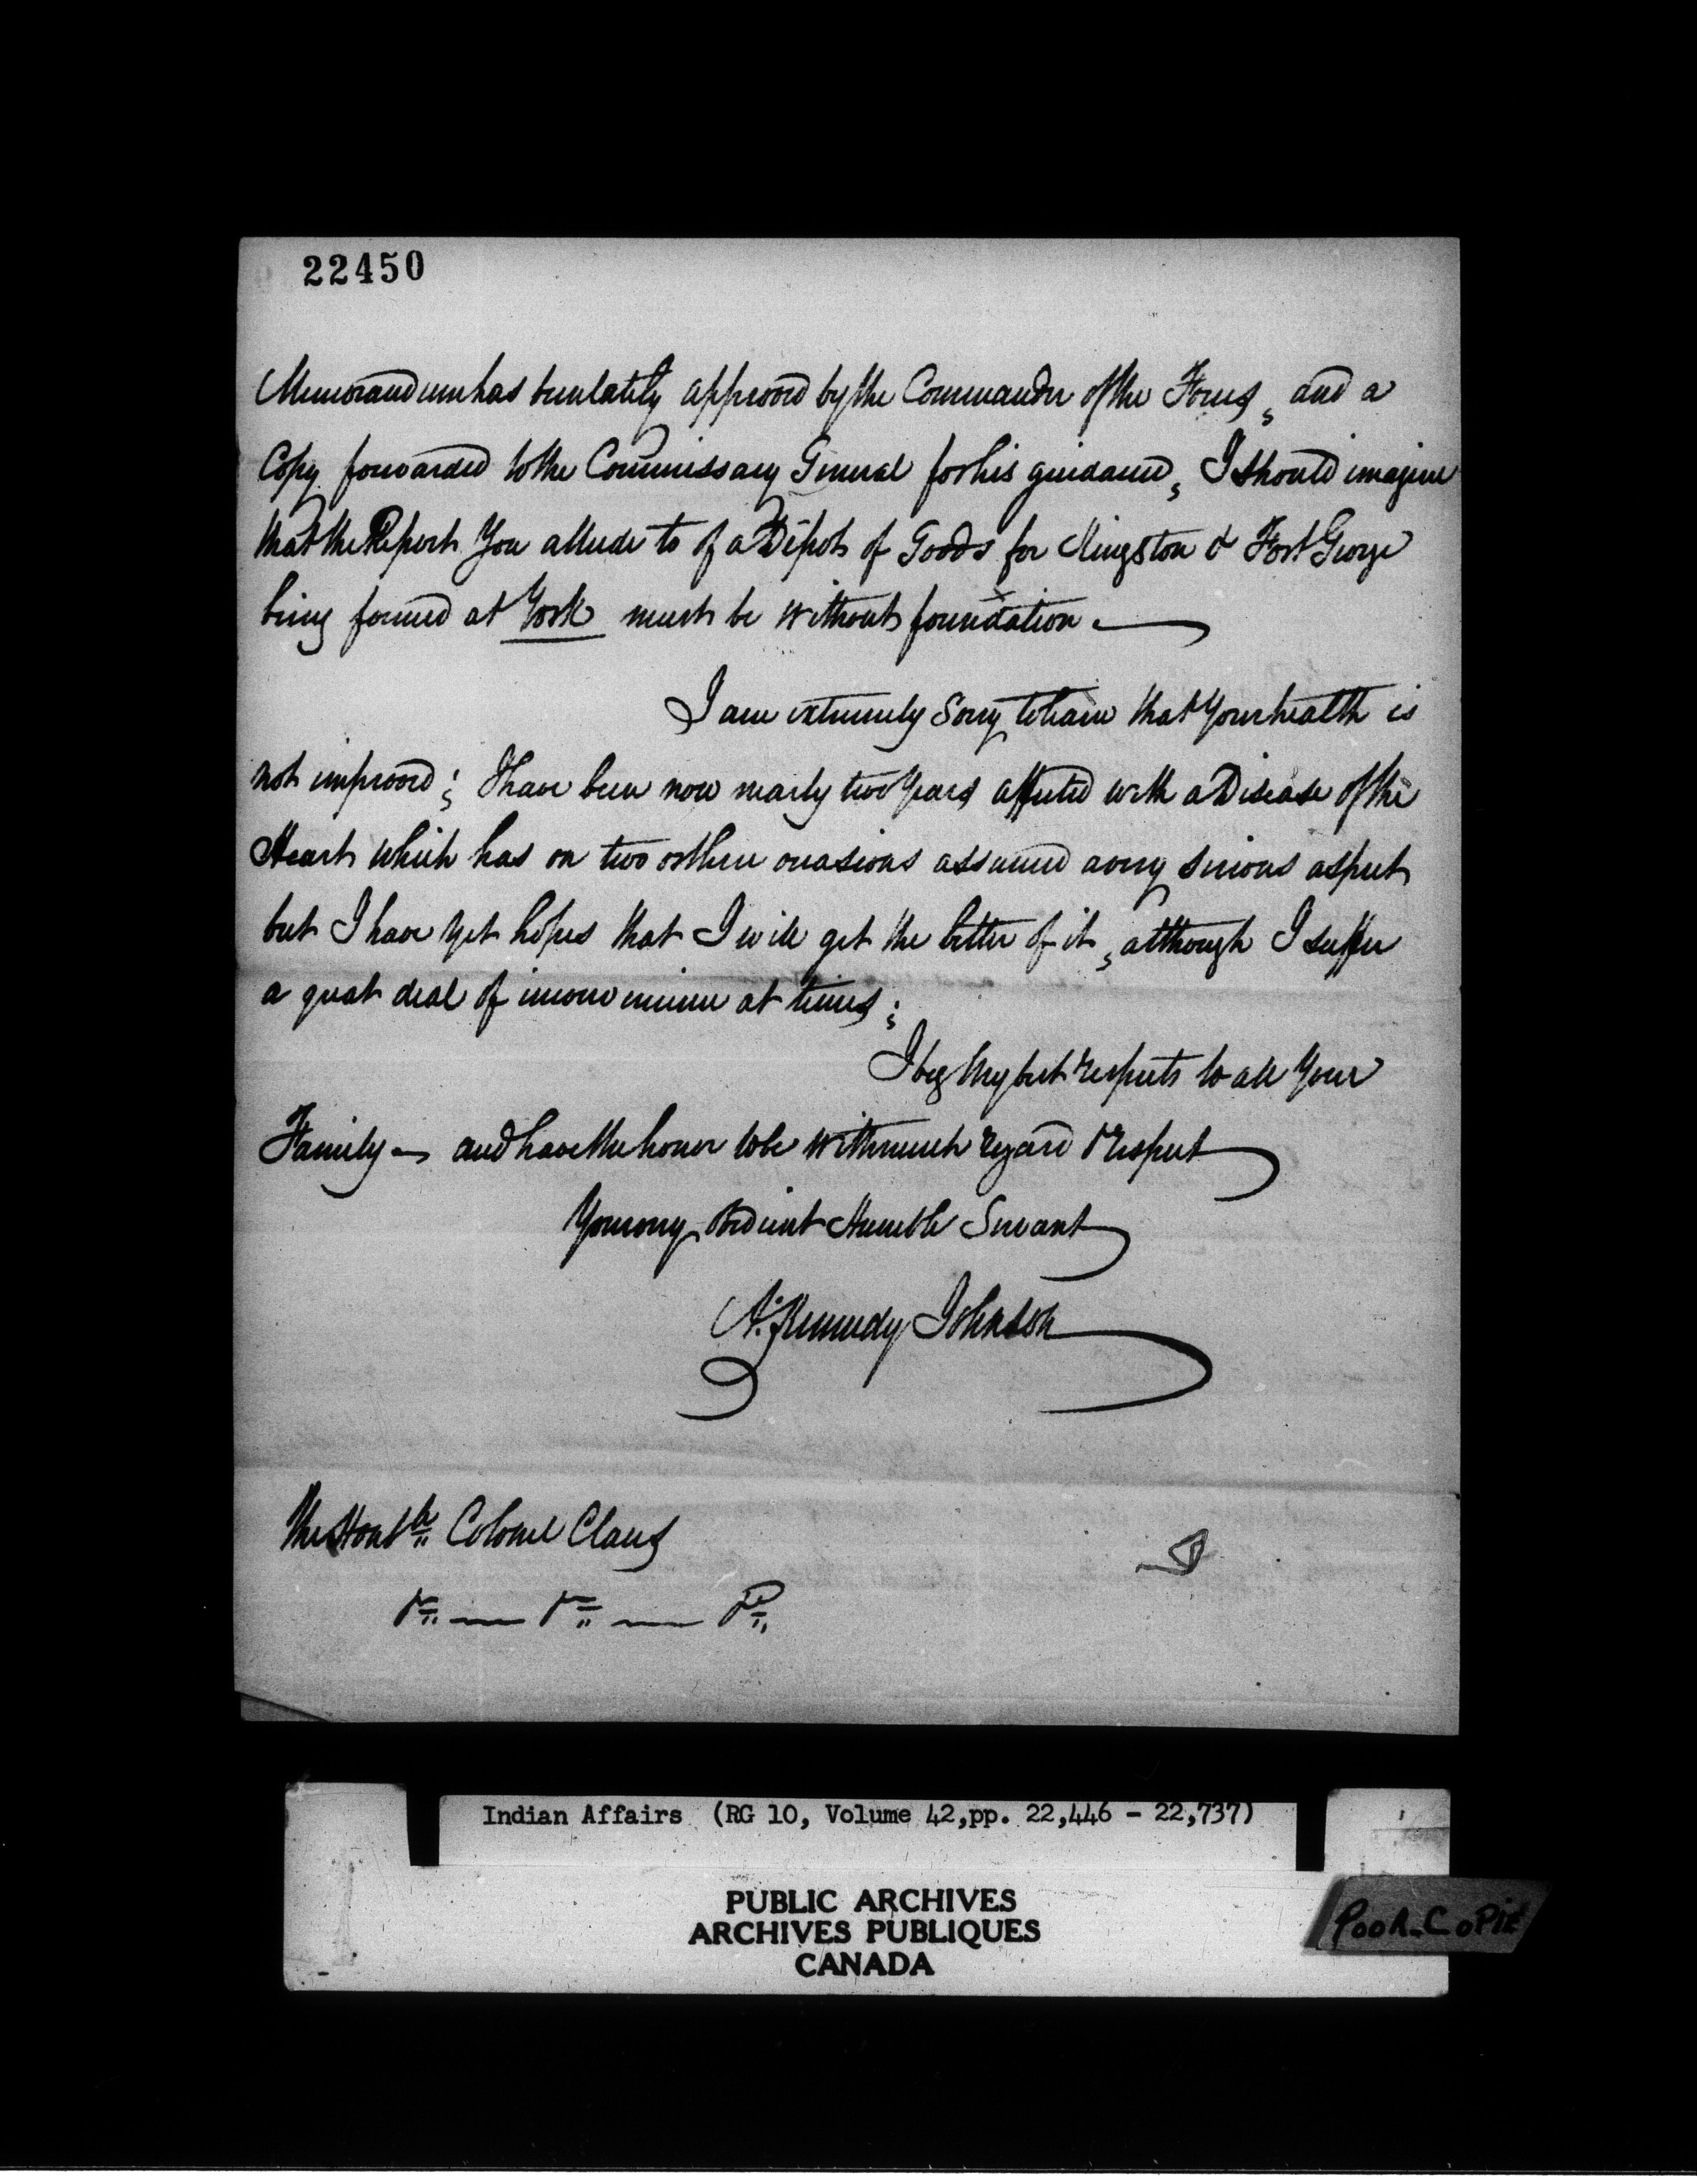 22450
Memorandum has been lately approved by the Commander of the Forces, and a
Copy forwarded to the Commissary General for his guidance, I should imagine
that the Report You allude to of a Dépot of Goods for Kingston & Fort George
being formed at York must be without foundation.
I am extremely Sorry to learn that Your health is
not improved; I have been now nearly two Years affected with a Disease of the
Heart which has on two or three occasions assumed a very serious aspect
but I have yet hopes that I will get the better of it, although I suffer
a great deal of inconvenience at times;
I beg my best respects to all Your
Family — and have the honor to be with much regard & respect
Your very obedient Humble Servant
N. Kennedy Johnson
The Honble Colonel Claus
&c — &c — &c
Indian Affairs (RG 10, Volume 42, pp. 22,446 - 22,737)
PUBLIC ARCHIVES
ARCHIVES PUBLIQUES
CANADA
POOR COPIE